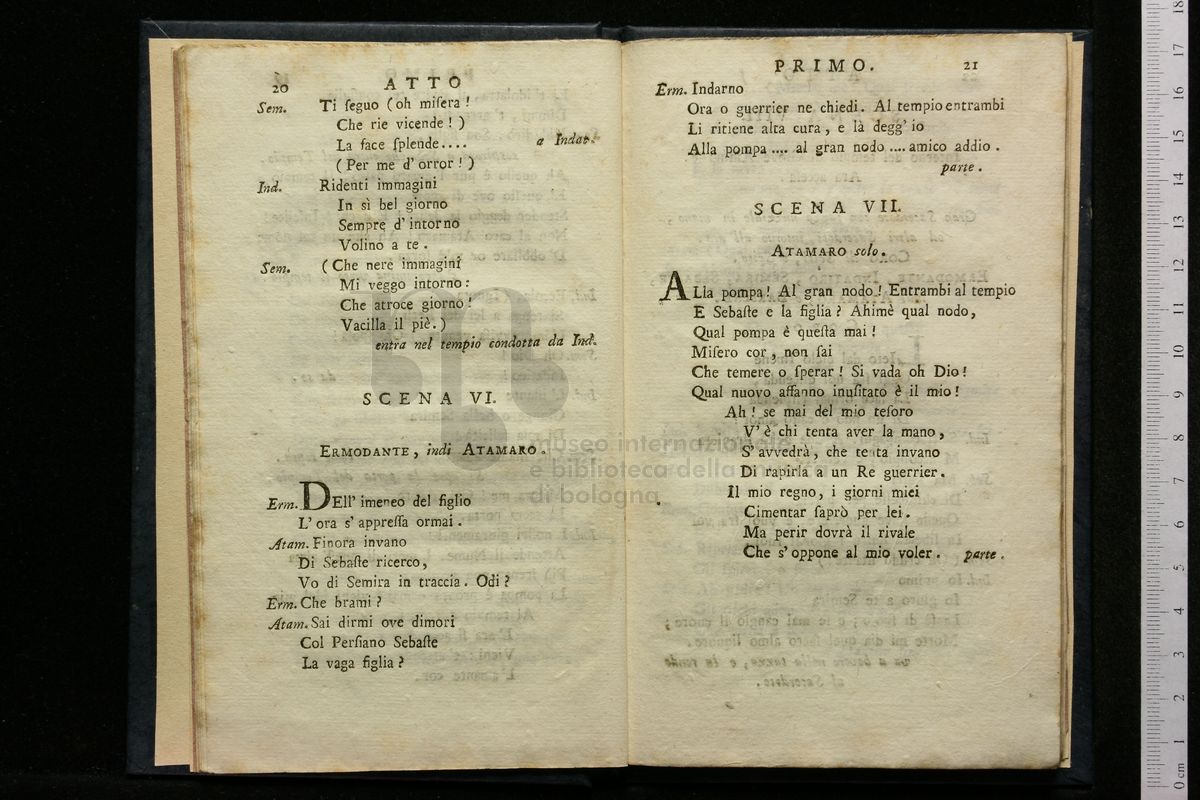 20 ATTO
Sem. Ti ſeguo (oh miſera!
Che rie vicende!)
La face ſplende.... a Indat.
(Per me d'orror!)
Ind. Ridenti immagini
In sì bel giorno
Sempre d'intorno
Volino a te.
Sem. (Che nere immagini
Mi veggo intorno:
Che atroce giorno!
Vacilla il piè.)
entra nel tempio condotta da Ind.
SCENA VI.
ERMODANTE, indi ATAMARO.
Erm. DEll' imeneo del figlio
L'ora s'appreſſa ormai.
Atam. Finora invano
Di Sebaſte ricerco,
Vo di Semira in traccia. Odi?
Erm. Che brami?
Atam. Sai dirmi ove dimori
Col Perſiano Sebaſte
La vaga figlia?
PRIMO. 21
Erm. Indarno
Ora o guerrier ne chiedi. Al tempio entrambi
Li ritiene alta cura, e là degg' io
Alla pompa .... al gran nodo .... amico addio.
parte.
SCENA VII.
ATAMARO solo.
ALla pompa! Al gran nodo! Entrambi al tempio
E Sebaſte e la figlia? Ahimè qual nodo,
Qual pompa è queſta mai!
Miſero cor, non ſai
Che temere o ſperar! Si vada oh Dio!
Qual nuovo affanno inuſitato è il mio!
Ah! se mai del mio teſoro
V'è chi tenta aver la mano,
S'avvedrà, che tenta invano
Di rapirla a un Re guerrier.
Il mio regno, i giorni miei
Cimentar ſaprò per lei.
Ma perir dovrà il rivale
Che s'oppone al mio voler. parte.
museo internazionale
e biblioteca della
di bologna
0 cm 1 2 3 4 5 6 7 8 9 10 11 12 13 14 15 16 17 18